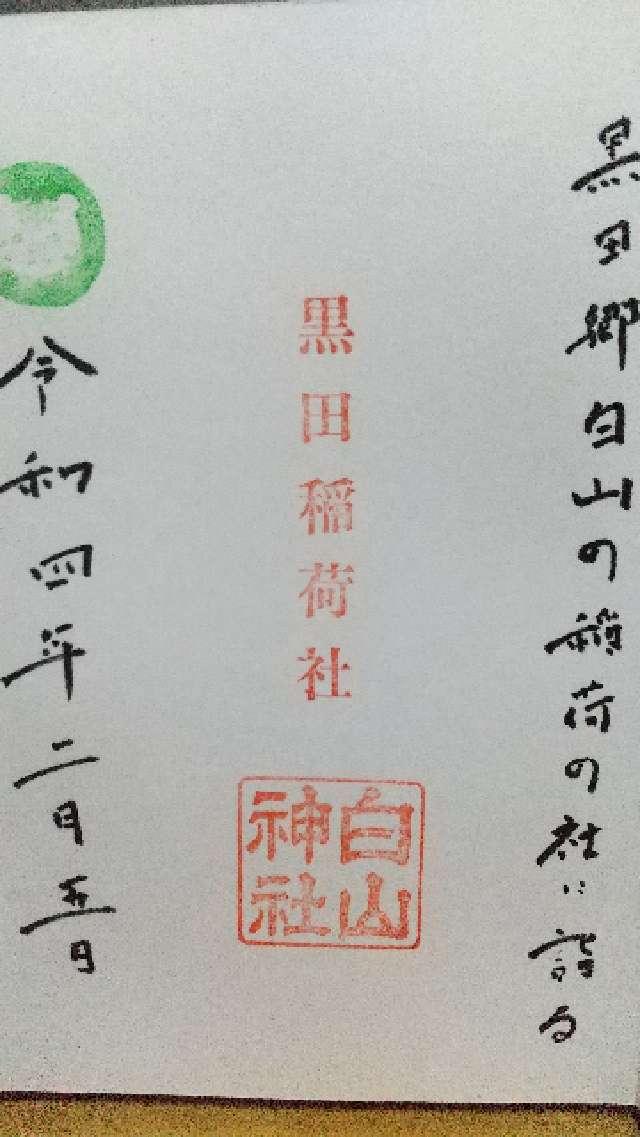 黒田郷白山の稲荷の社に詣る
黒田稲荷社
白山
神社
令和四年二月五日